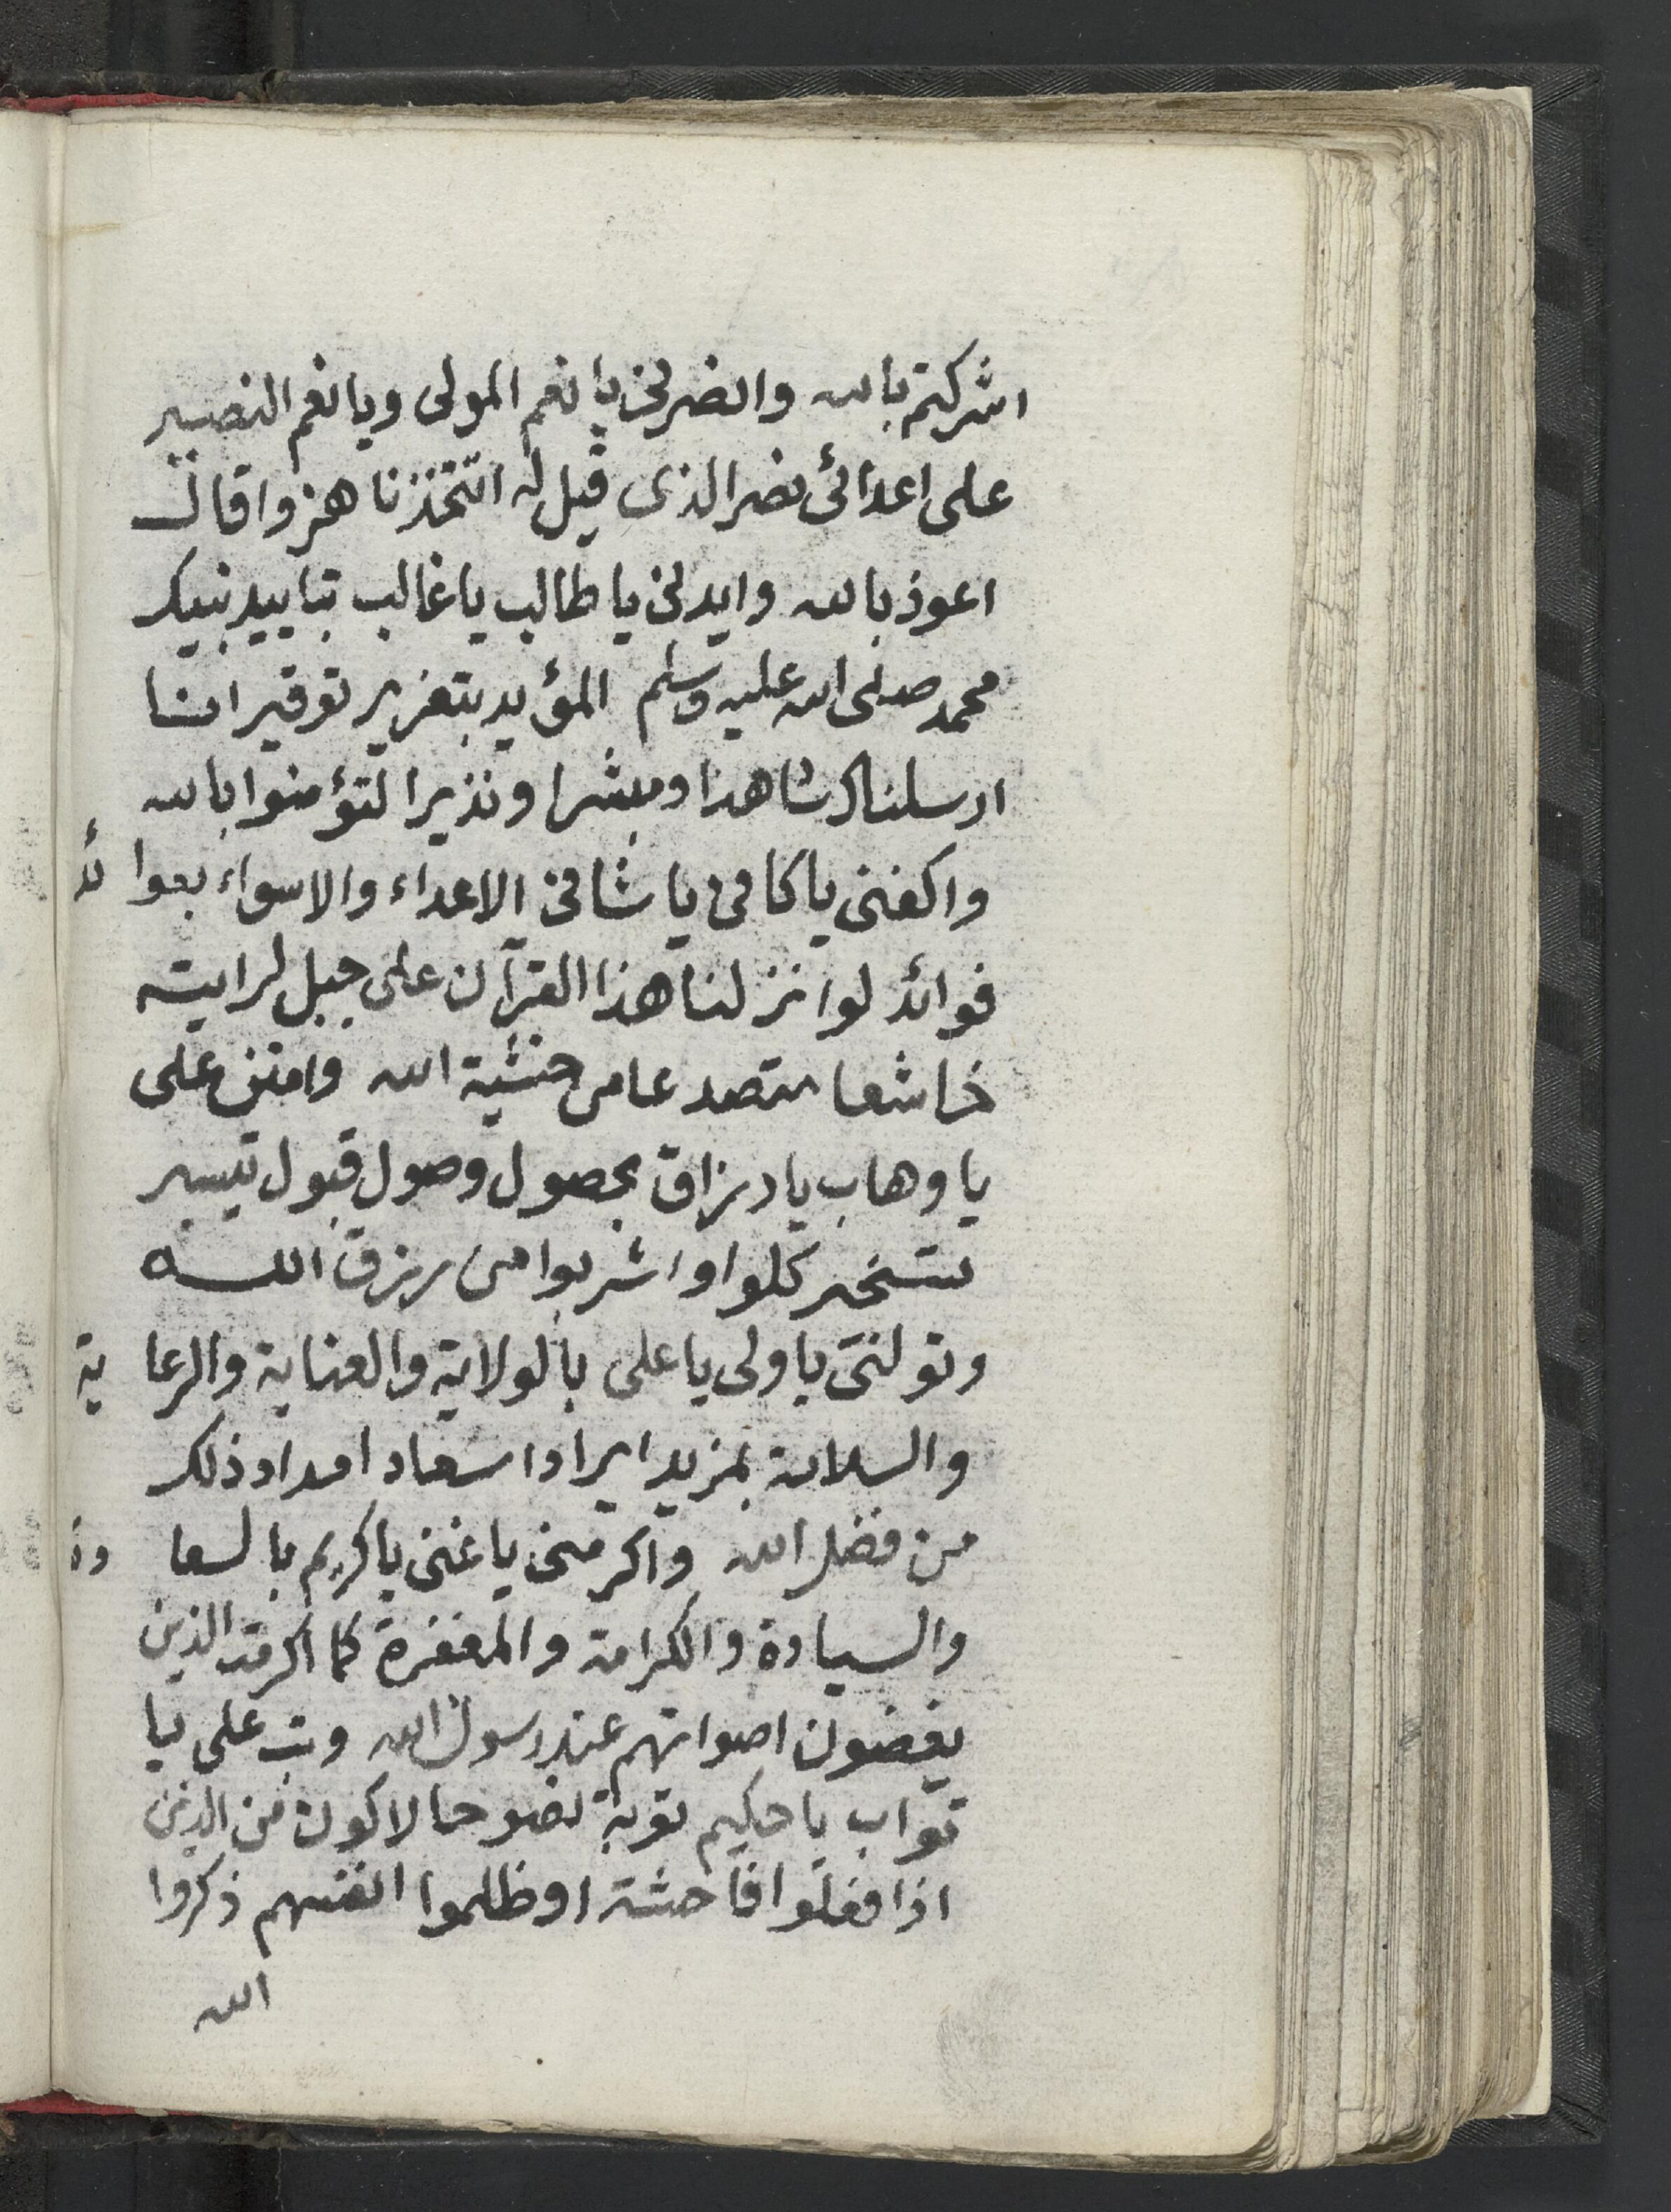 اشركتم بالله وانصرني يا نعم المولى ويا نعم النصير
على اعدائي نصر الذي قيل له اتتخذنا هزوا قال
اعوذ بالله وايدني يا طالب يا غالب بتاييد نبيك
محمد صلى الله عليه وسلم المؤيد بتعزير توقير انا
ارسلناك شاهدا ومبشرا ونذيرا لتؤمنوا بالله
واكفني يا كافي يا شافي الاعداء والاسواء بعوائد
فوائد لو انزلنا هذا القرآن على جبل لرايته
خاشعا متصدعا من خشية الله وامنن على
يا وهاب يا رزاق بحصول وصول قبول تيسير
تسخير كلوا واشربوا من رزق الله
وتولني يا ولى يا على بالولاية والعناية والرعاية
والسلامة بمزيد ايراد اسعاد امداد ذلك
من فضل الله واكرمني يا غني يا كريم بالسعادة
والسيادة والكرامة والمغفرة كما اكرمت الذين
يغضون اصواتهم عند رسول الله وتب على يا
تواب يا حكيم توبة نصوحا لاكون من الذين
اذا فعلوا فاحشة او ظلموا انفسهم ذكروا
الله